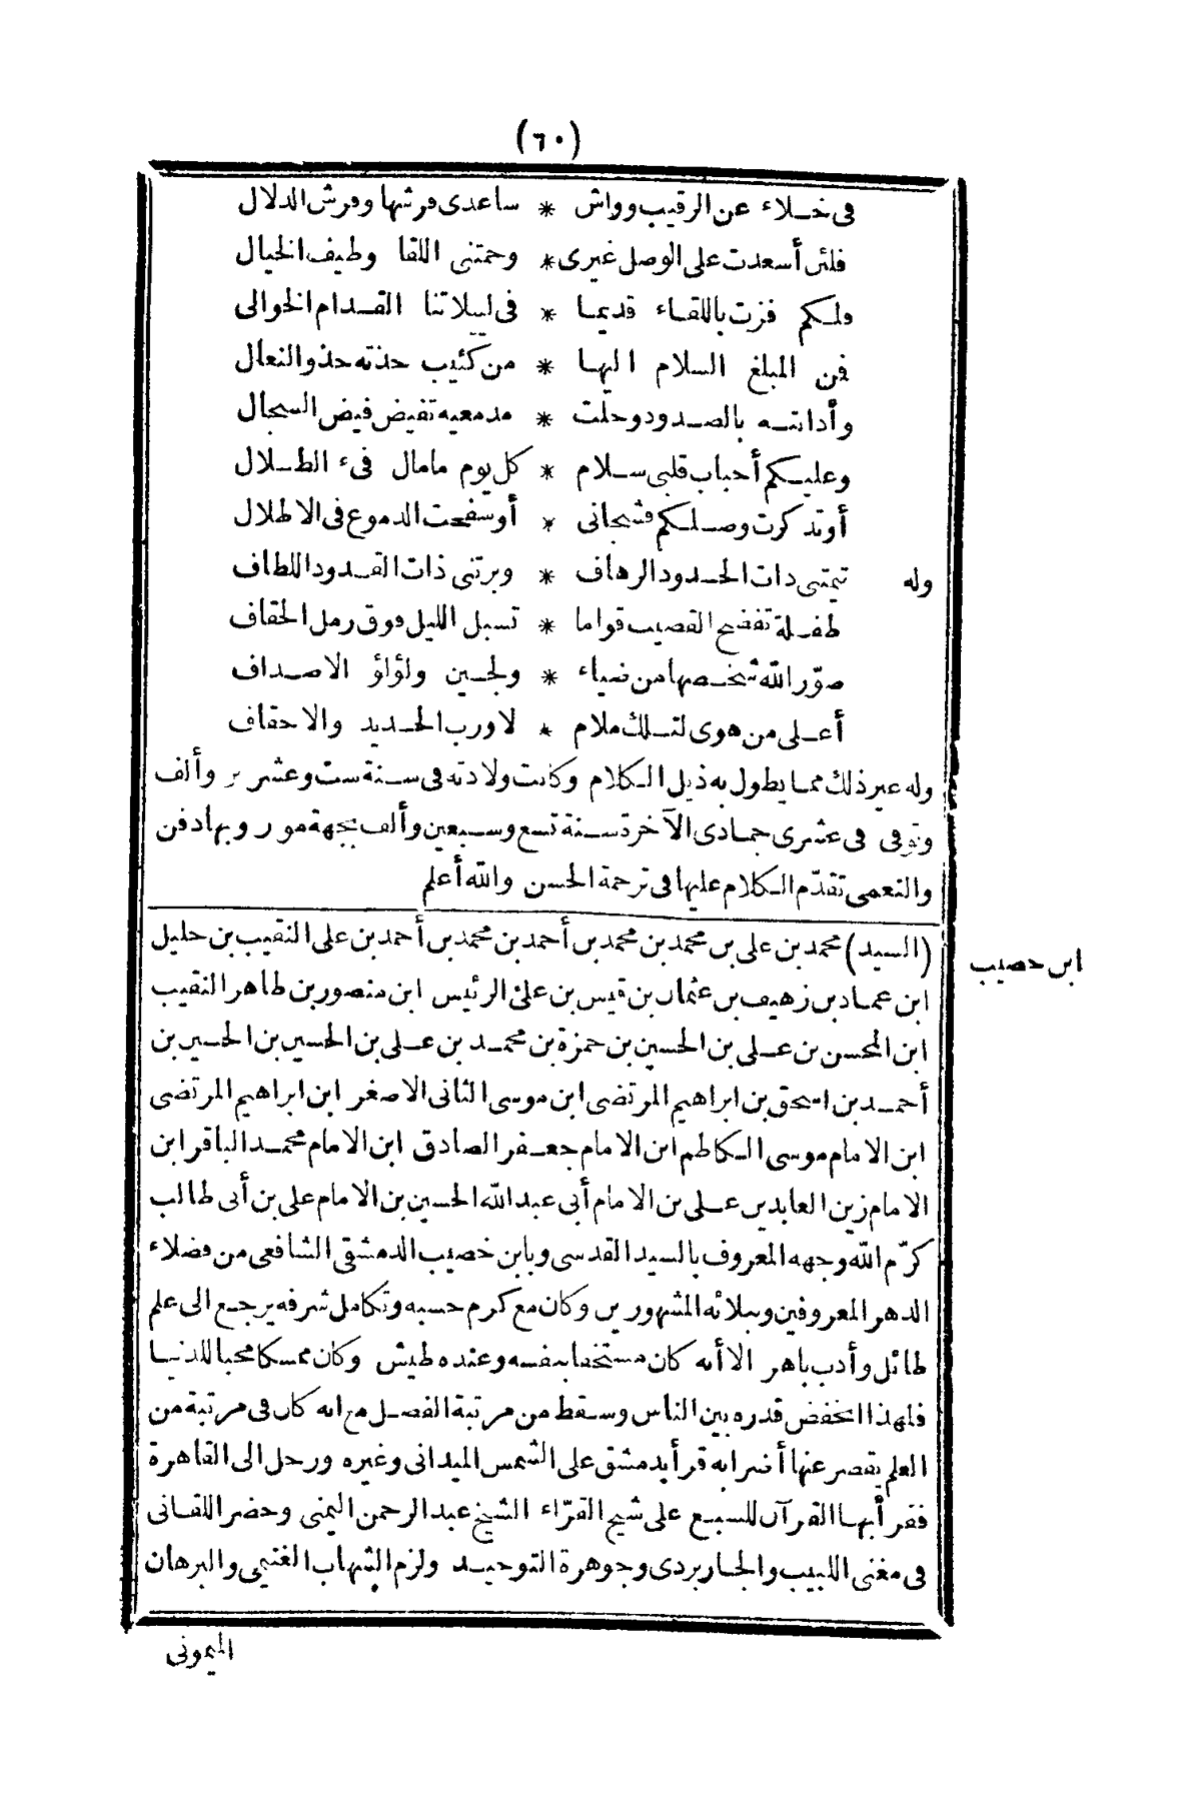 (٦٠)
فى خلاء عن الرقيب وواش * ساعدى فرشها وفرش الدلال
فلئن أسعدت على الوصل غيرى * وحمتنى اللقا وطيف الخيال
ولكم فزت باللقاء قديما * فى ليلاتنا القدام الخوالى
فمن المبلغ السلام اليها * من كئيب حذته حذو النعال
وأذابته بالصدود وحلت * مدمعيه تفيض فيض السجال
وعليكم أحباب قلبى سلام * كل يوم مامال فىء الظلال
أو تذكرت وصلكم فشجانى * أو سفحت الدموع فى الاطلال
وله تيمتنى ذات الخدود الرهاف * وبرتنى ذات القدود اللطاف
طفلة تفضح القضيب قواما * تسبل الليل فوق رمل الحقاف
صوّر الله شخصها من ضياء * ولجين ولؤلؤ الاصداف
أعلى من هوى لتلك ملام * لا ورب الحديد والاحقاف
وله غير ذلك مما يطول به ذيل الكلام وكانت ولادته فى سنة ست وعشرين وألف
وتوفى فى عشرى جمادى الآخرة سنة تسع وسبعين وألف بجهة مور وبها دفن
والنعمى تقدّم الكلام عليها فى ترجمة الحسن والله أعلم
(السيد) محمد بن على بن محمد بن محمد بن أحمد بن محمد بن أحمد بن على النقيب بن خليل
ابن خصيب
ابن عماد بن زهيف بن عثمان بن قيس بن على الرئيس ابن منصور بن طاهر النقيب
ابن المحسن بن على بن الحسين بن حمزة بن محمد بن على بن الحسين بن الحسين بن
أحمد بن اسحق بن ابراهيم المرتضى ابن موسى الثانى الاصغر ابن ابراهيم المرتضى
ابن الامام موسى الكاظم ابن الامام جعفر الصادق ابن الامام محمد الباقر ابن
الامام زين العابدين على بن الامام أبى عبد الله الحسين بن الامام على بن أبى طالب
كرّم الله وجهه المعروف بالسيد القدسى وبابن خصيب الدمشقى الشافعى من فضلاء
الدهر المعروفين ونبلائه المشهورين وكان مع كرم حسبه وتكامل شرفه يرجع الى علم
طائل وأدب باهر الا أنه كان مستخفا بنفسه وعنده طيش وكان ممسكا محبا للدنيا
فلهذا انخفض قدره بين الناس وسقط من مرتبة الفضل مع انه كان فى مرتبة من
العلم يقصر عنها أضرابه قرأ بدمشق على الشمس الميدانى وغيره ورحل الى القاهرة
فقرأ بها القرآن للسبع على شيخ القرّاء الشيخ عبد الرحمن اليمنى وحضر اللقانى
فى مغنى اللبيب والجاربردى وجوهرة التوحيد ولزم الشهاب الغنيمى والبرهان
الميمونى